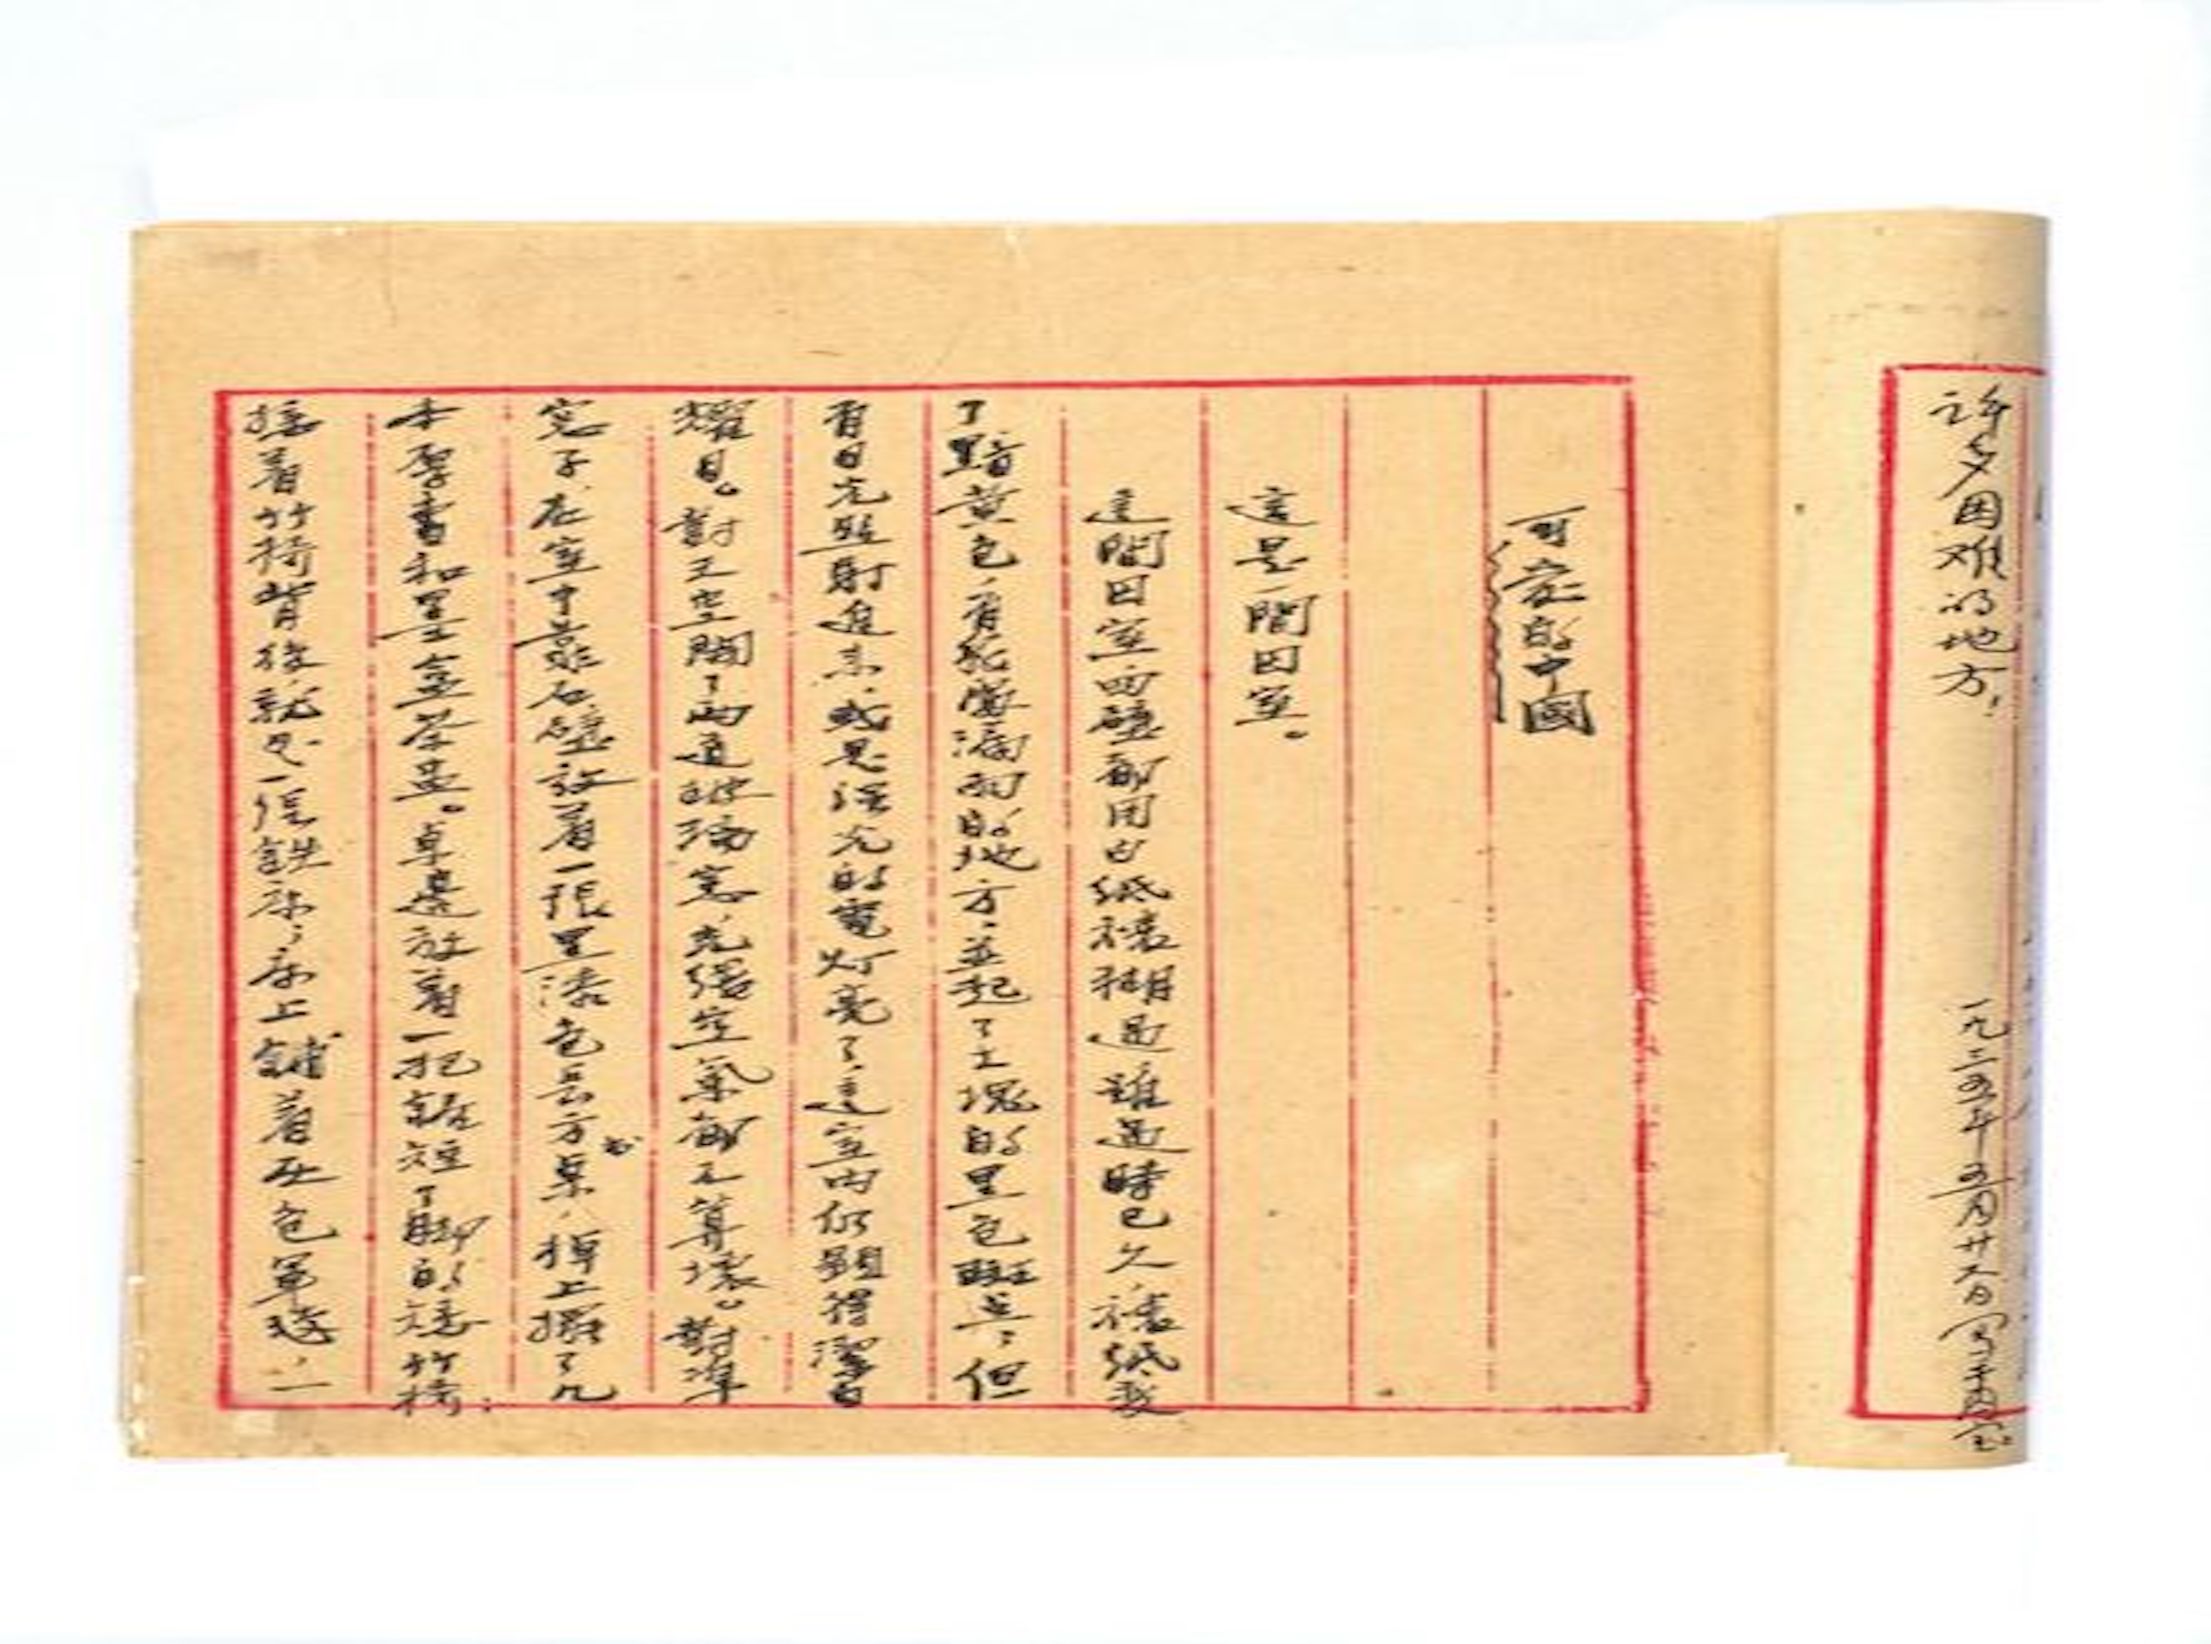 许多困难的地方，
一九三五年五月廿六日写于囚室
可愛的中國
這是一間囚室。
這間囚室四壁都用白紙裱糊過雖過時已久，裱紙變
了黯黃色，有幾處漏雨的地方，並起了大塊的黑色斑点；但
有日光照射進來，或是强光的電灯亮了，這室内仍顯得潔白
耀目。對天空開了兩道玻璃窗，光線空氣都不算壞。對準
窗子，在室中靠石壁放着一張黑漆色長方書桌，棹上擺了几
本厚書和墨盒茶盅。桌邊放着一把鋸短了脚的矮竹椅；
接着竹椅背後就是一張鉄床；床上鋪着灰色軍毯，一